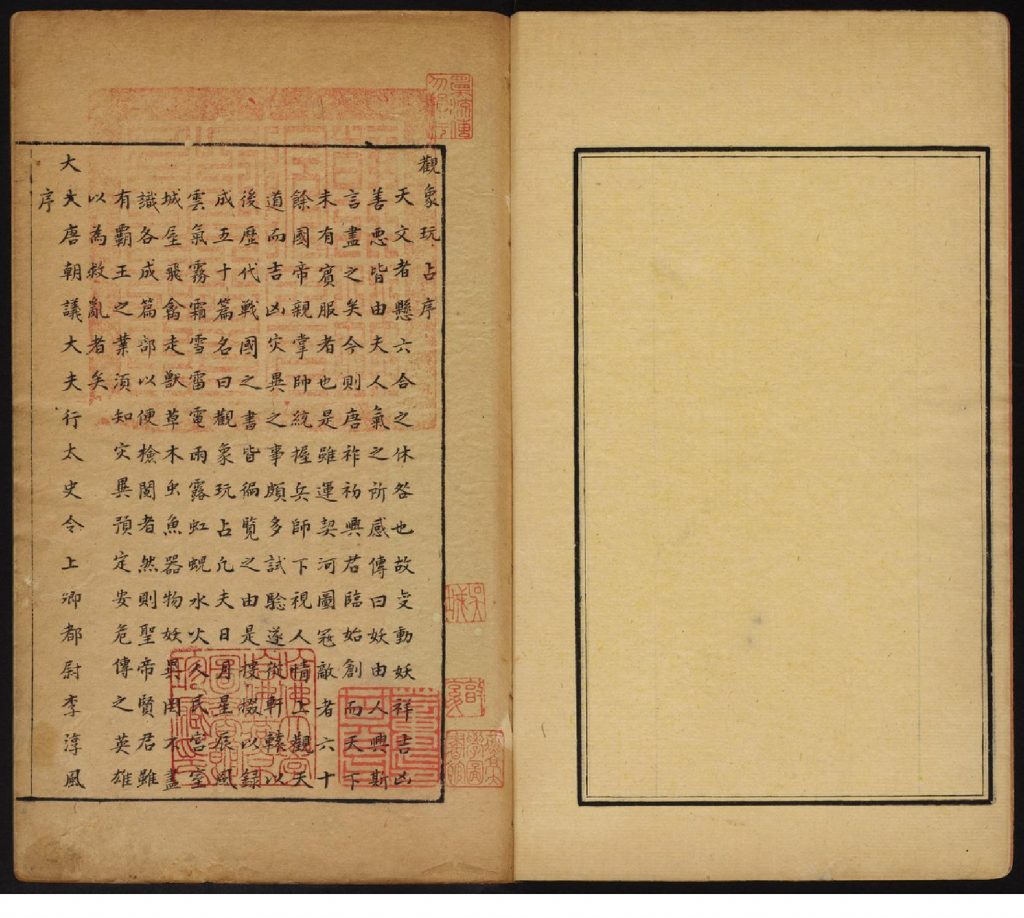 觀象玩占序
天文者懸六合之休咎也故变動妖祥吉凶
善惡皆由夫人氣之所感傳曰妖由人興斯
言盡之矣今則唐祚初興君臨始創而天下
未有賓服者也是雖運契河圖冦敵者六十
餘國帝親掌師統握兵師下視人情上觀天
道而吉凶灾異之事頗多試驗遂從軒轅以
後歷代戰國之書皆徧覧之由是摟綴以録
成五十篇名曰觀象玩占凢夫日月星辰風
雲氣霧霜雪雷電雨露虹蜺水火人民宫室
城屋飛禽走獸草木虫魚器物妖異因不盡
識各成篇部以便檢閱者然則聖帝賢君雖
有霸王之業湏知灾異預定安危傳之英雄
以為救亂者矣
大大唐朝議大夫行太史令上卿都尉李淳風
序